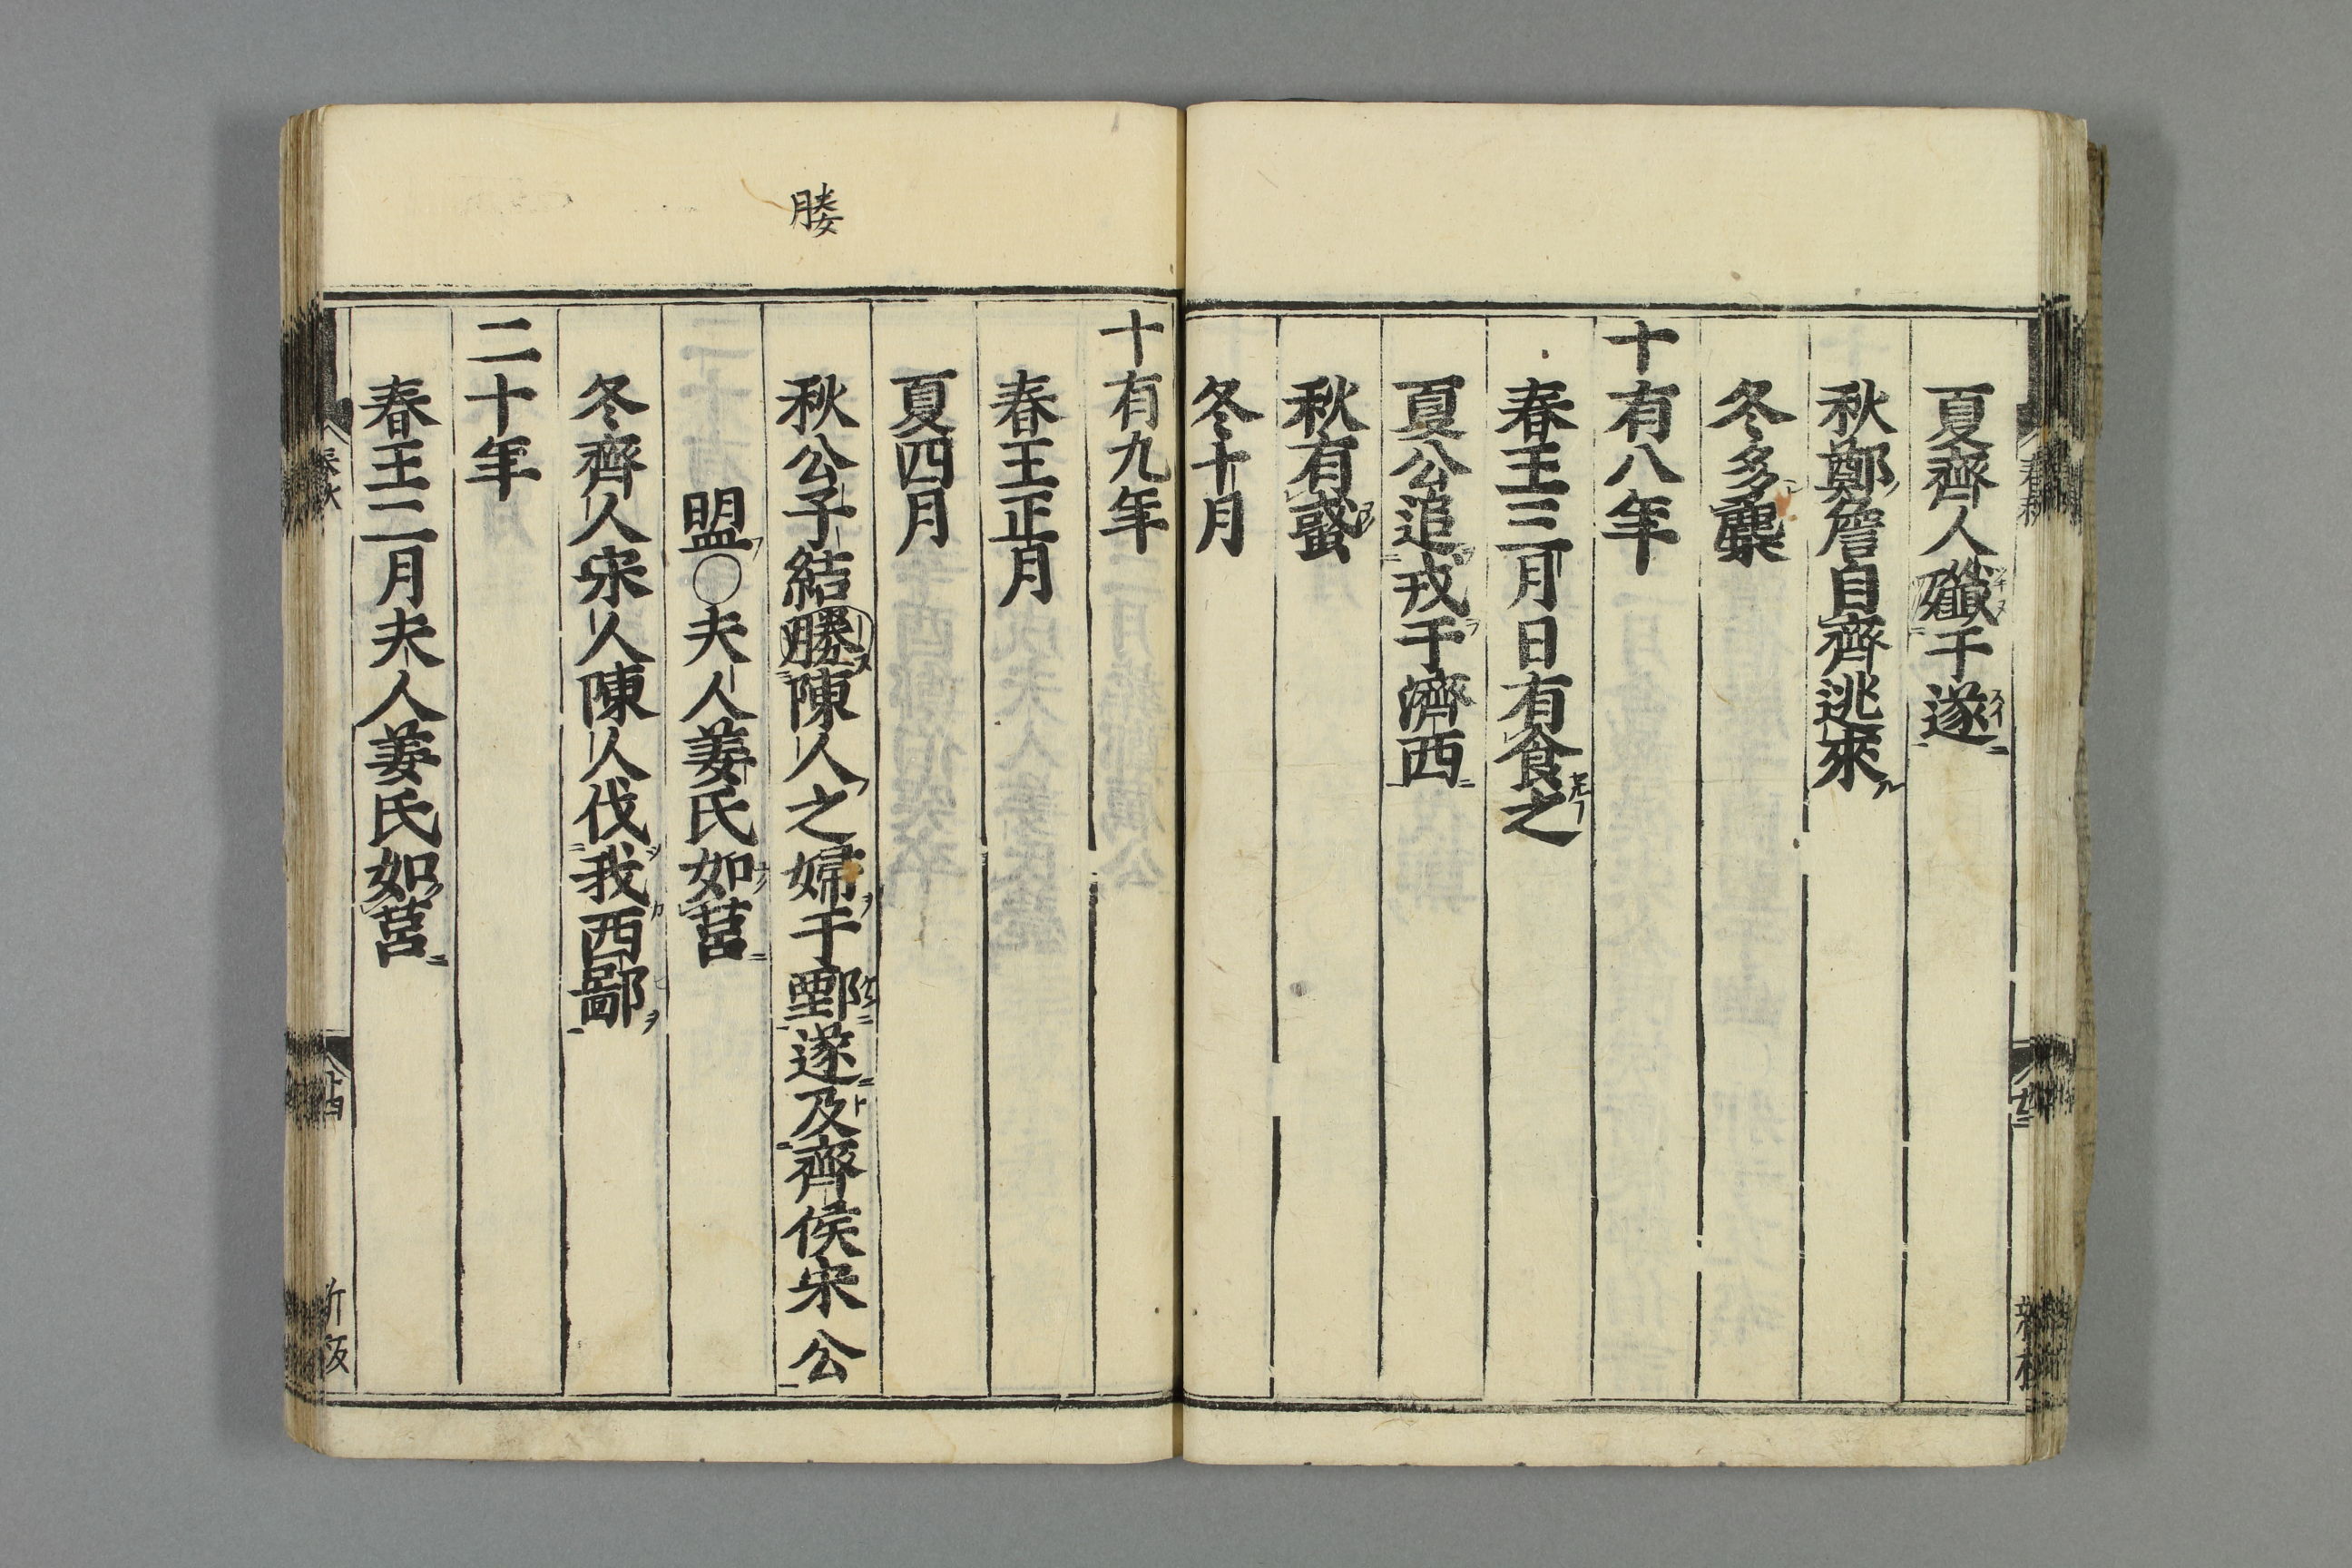 夏齊人殲于遂
秋鄭詹自齊逃來
冬多麋
十有八年
春王三月日有食之
夏公追戎于濟西
秋有蜮
冬十月
十有九年
春王正月
夏四月
媵
秋公子結媵陳人之婦于鄄遂及齊侯宋公
盟〇夫人姜氏如莒
冬齊人宋人陳人伐我西鄙
二十年
春王二月夫人姜氏如莒